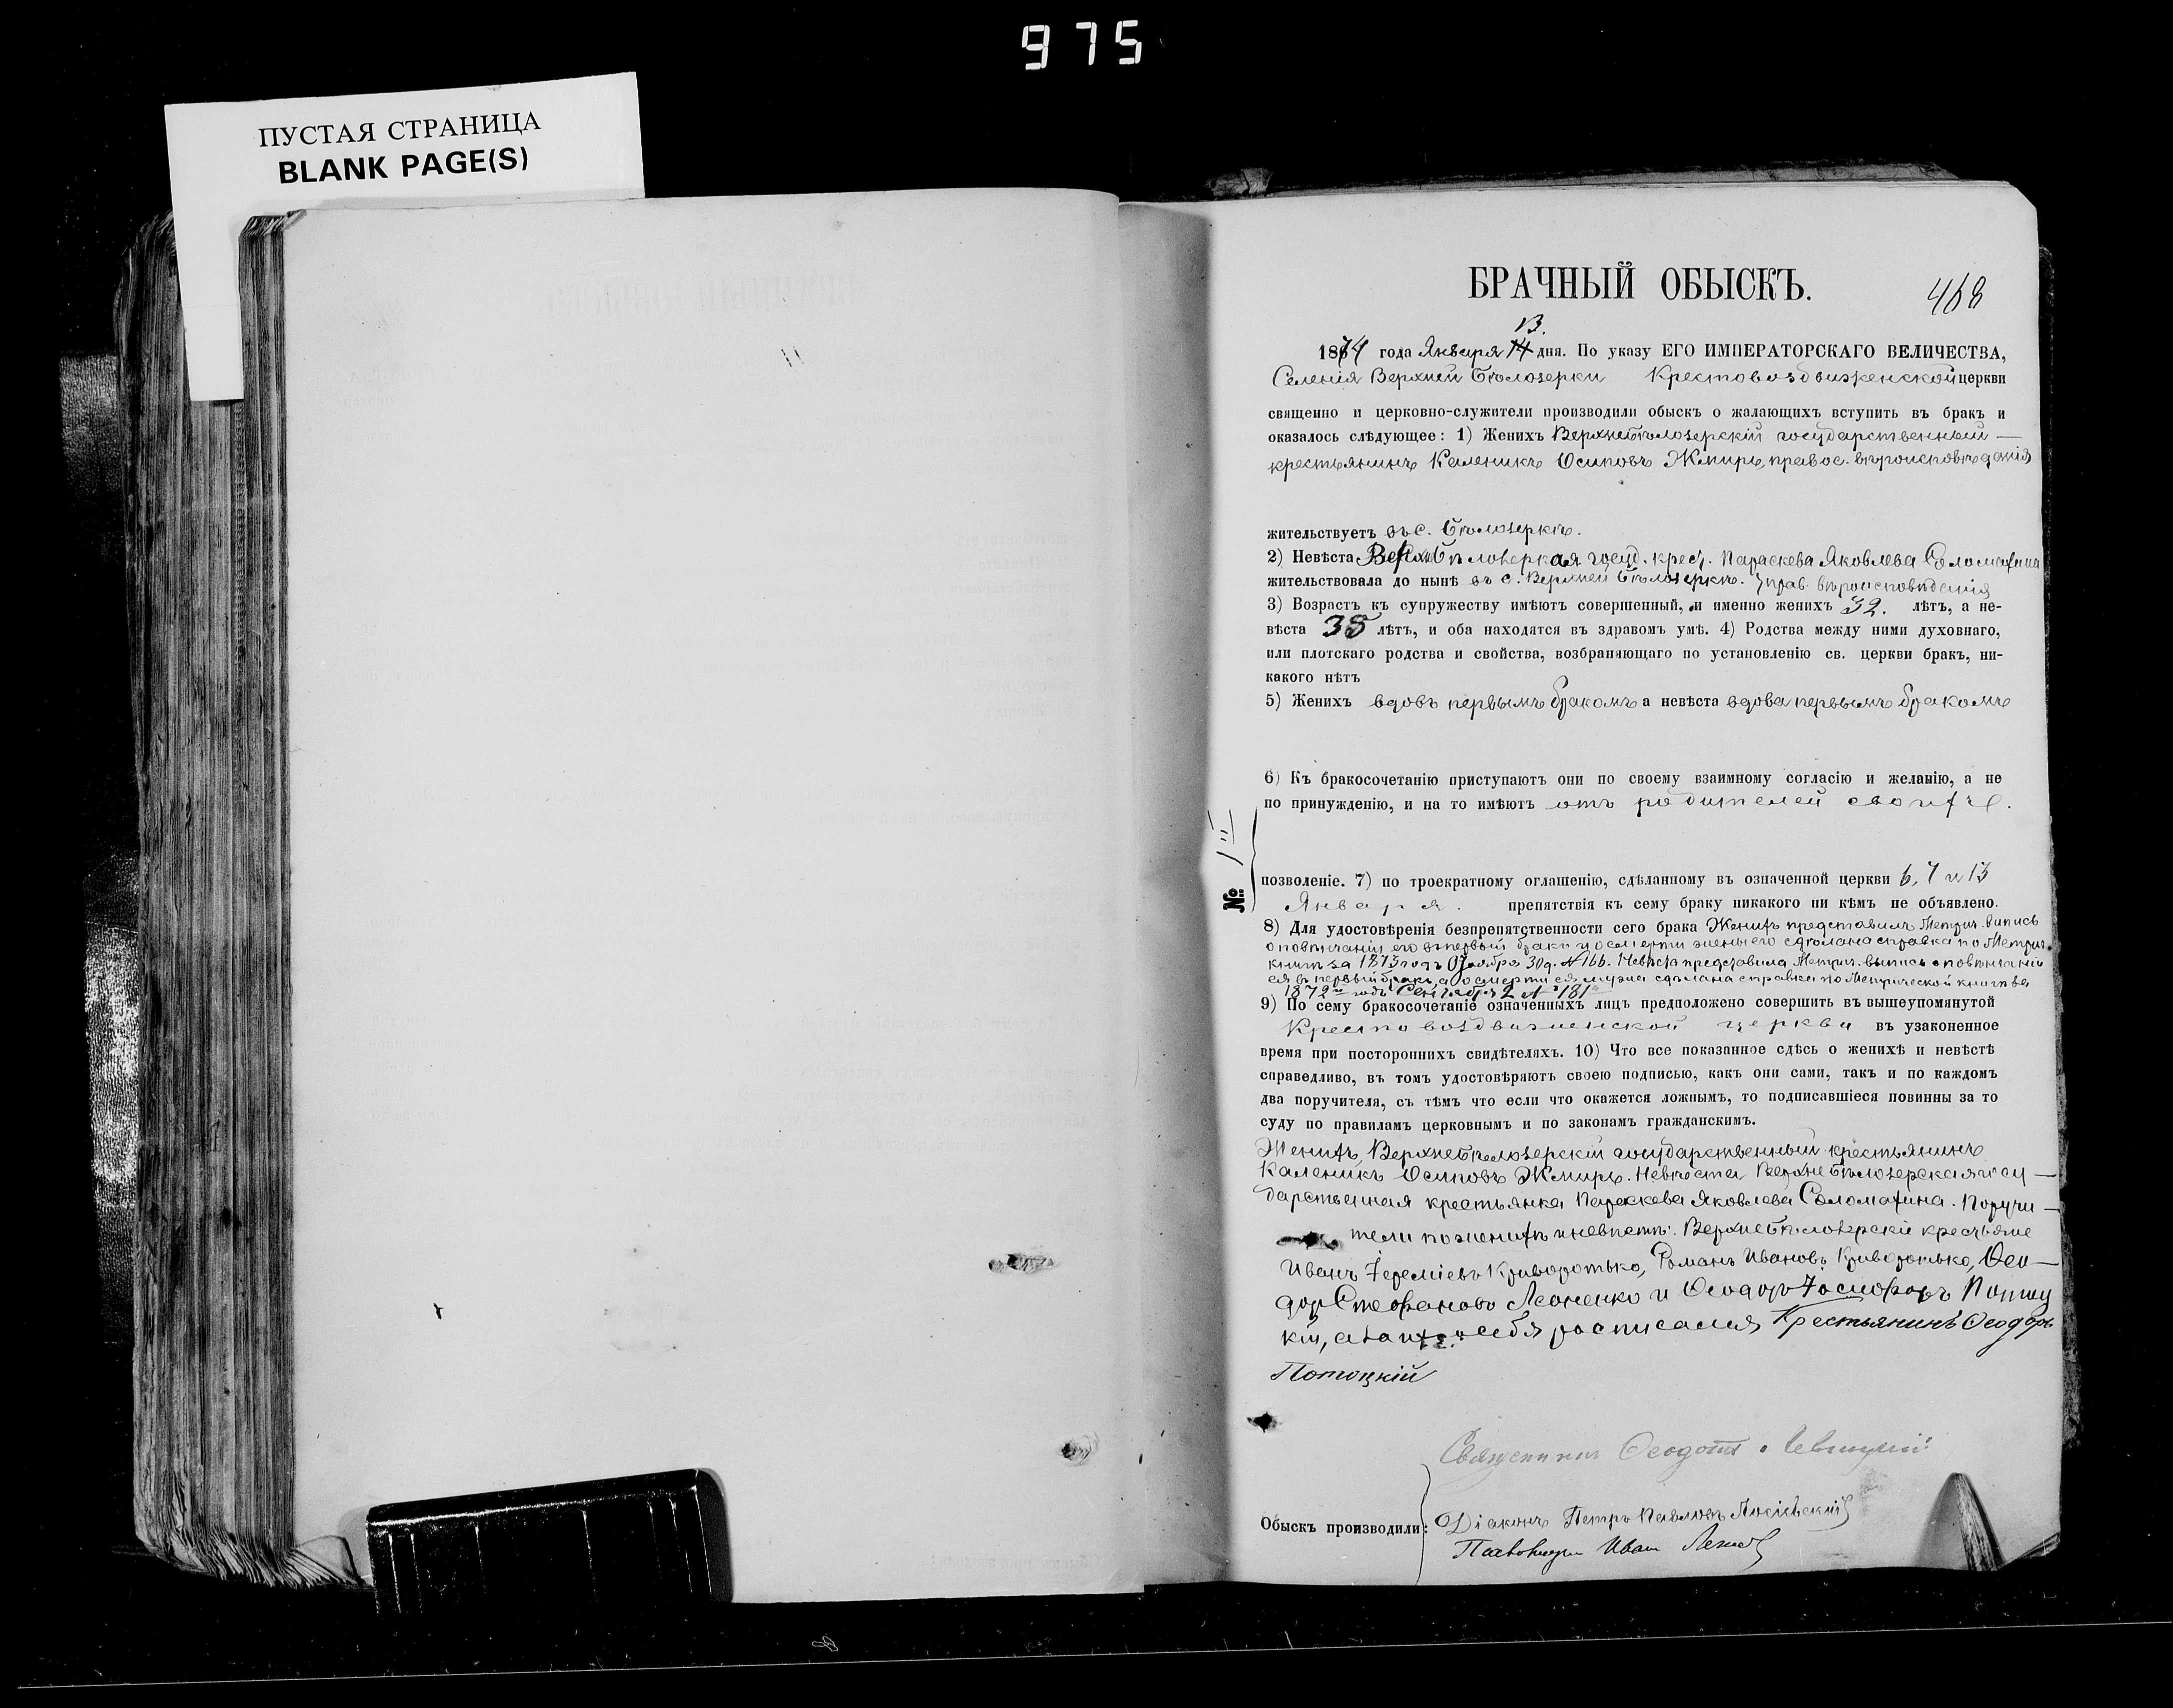 975
ПУСТАЯ СТРАНИЦА
BLANK PAGE(S)
БРАЧНЫЙ ОБЫСКЪ.
468
13.
1874 года Января 14 дня. По указу ЕГО ИМПЕРАТОРСКАГО ВЕЛИЧЕСТВА,
Селенія Верхней Бѣлозерки Крестовоздвиженской церкви
священно и церковно-служители производили обыскъ о жалающихъ вступить въ бракъ и
оказалось слѣдующее: 1) Женихъ Верхнебѣлозерскій государственный —
крестьянинъ Каленикъ Осиповъ Жмиръ, правос. вѣроисповѣданія
жительствуетъ въ с. Бѣлозеркѣ.
2) Невѣста Верхнебѣлозеркая госуд. крест. Параскева Яковлева Соломахина
жительствовала до нынѣ въ с. Верхней Бѣлозеркѣ. прав. вѣроисповѣданія
3) Возрастъ къ супружеству имѣютъ совершенный, и именно женихъ 32. лѣтъ, а не-
вѣста 38 лѣтъ, и оба находятся въ здравомъ умѣ. 4) Родства между ними духовнаго,
или плотскаго родства и свойства, возбраняющаго по установленію св. церкви бракъ, ни-
какого нѣтъ
5) Женихъ вдовъ первымъ бракомъ а невѣста вдова первымъ бракомъ
6) Къ бракосочетанію приступаютъ они по своему взаимному согласію и желанію, а не
по принужденію, и на то имѣютъ отъ родителей своихъ.
№
позволеніе. 7) по троекратному оглашенію, сдѣланному въ означенной церкви 6, 7 и 13
Января. препятствія къ сему браку никакого ни кѣмъ не объявлено.
8) Для удостовѣренія безпрепятственности сего брака Женихъ представилъ Метрич. выпись
о повѣнчаніи его въ первый бракъ и о смерти жены его сдѣлана справка по Метрич.
книгѣ за 1873 годъ 30 д. №166. Невѣста представила Метрич. выпись о повѣнчаніи
ея въ первый бракъ, а о смерти ея мужа сдѣлана справка по Метрической книгѣ за
1872й годъ Сентября 2 № 181
9) По сему бракосочетаніе означенныхъ лицъ предположено совершить въ вышеупомянутой
Крестовоздвиженской церкви въ узаконенное
время при постороннихъ свидѣтеляхъ. 10) Что все показанное сдѣсь о женихѣ и невѣстѣ
справедливо, въ томъ удостовѣряютъ своею подписью, какъ они сами, такъ и по каждомъ
два поручителя, съ тѣмъ что если что окажется ложнымъ, то подписавшіеся повинны за то
суду по правиламъ церковнымъ и по законамъ гражданскимъ.
Женихъ, Верхнебѣлозерскій государственный крестьянинъ
Каленикъ Осиповъ Жмиръ. Невѣста Верхнебѣлозерская госу —
дарственная крестьянка Параскева Яковлева Соломахина. Поручи —
тели по женихѣ и невѣстѣ: Верхнебѣлозерскіи крестьяне
Иванъ Іереміевъ Криворотько, Романъ Ивановъ Криворотько, Ѳео —
доръ Стефановъ Леоненко и Ѳеодоръ Потоц
кій, а за и себя росписался Крестьянинъ Ѳеодоръ
Потоцкій
Священникъ Ѳеодотъ Левицкій
Обыскъ производили: Діаконъ Петръ Павловъ
Иван